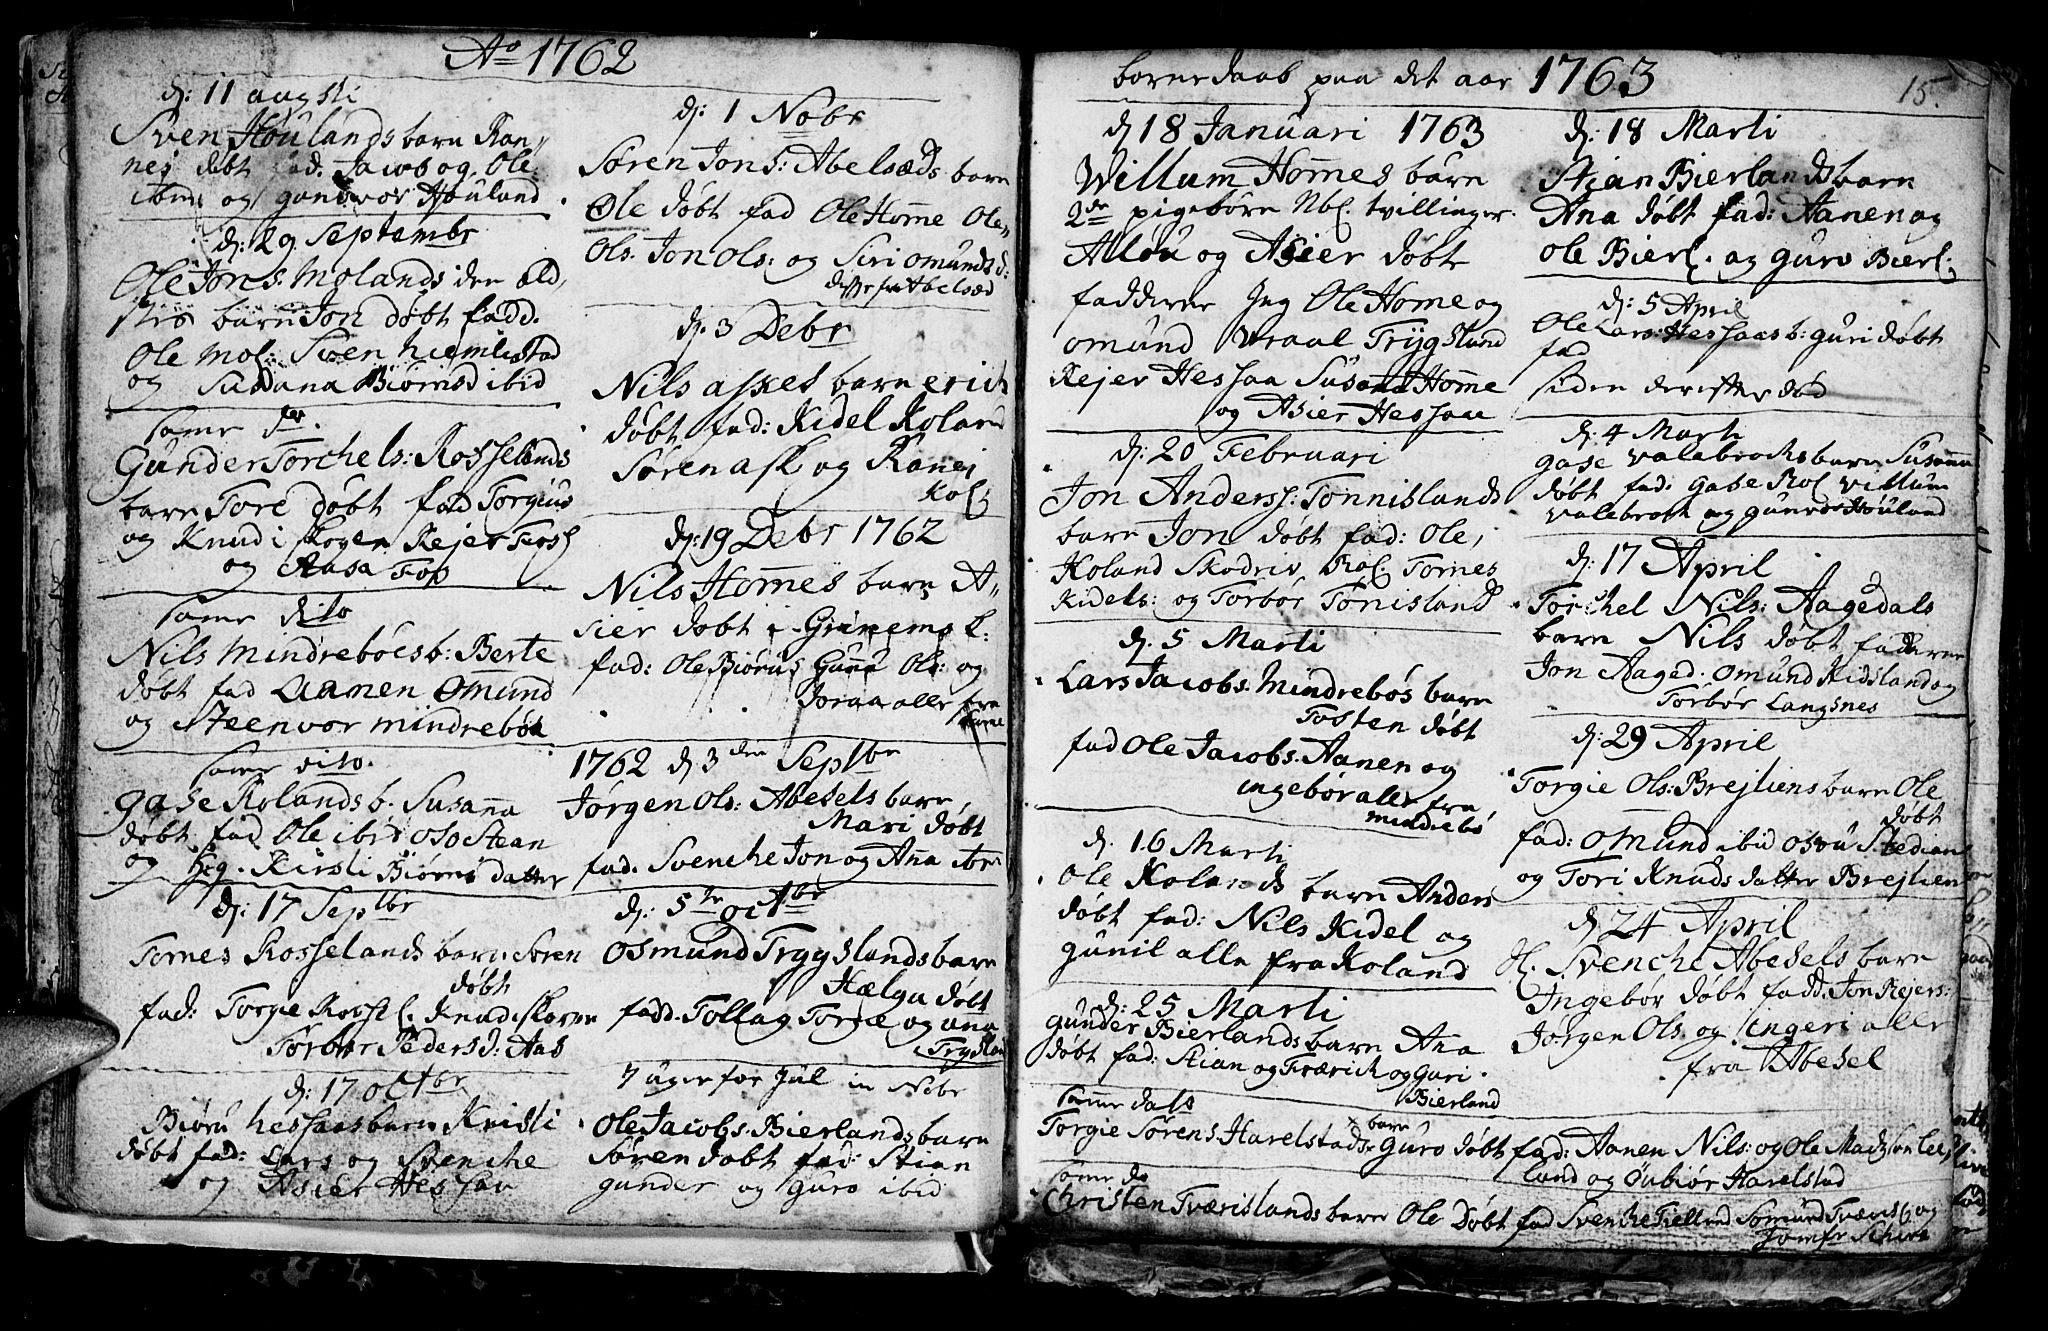 Ao 1762
d: 11 augsti
Sven Houlands barn Ran„
nei døbt fad. Jacob og Ole
ibm og gundvor Houland
d: 29 Septembr
Ole Jons: Molands den æld„
stis barn Jon døbt fadd.
Ole Mol: Sven hiemlestad
og Susana Biørnsd ibid
same
Gunder Torchels: Rosselands
barn Tore døbt fad Torgius
og Knud i skoven Rejer Foss
og Aasa Fos
same dito
Nils Mindrebøes b: Berte
døbt fad Aamen Omund
og Steenvor mindrebøe
same dito.
gase Rolands b. Susana
døbt fad Ole ibid Oso Stean
og Kirsti Biørns datter
d: 17 Septbr
Tomes Rosselands barn Søren
døbt
fad: Torgie Rossel. Knud skoven
Torbor Peders d: Aas
d: 17 octbr
Biørn hessaas barn Kristi
døbt fad: Lars og Svenche
og Asier Hessaa
d: 1 Nobr
Søren Jons: Abelsæds barn
Ole døbt fad Ole Home Ole
Ols. Jon Ols: og Siri omunds d:
disse fra Abelsæd
d: 3 Debr
Nils askes barn erich
døbt fad: Kidel Roland
Søren ask og Ranei
Rol:
d: 19 Debr 1762
Nils Homes barn A„
sier døbt i Grinems k:
fad: Ole Biørus Guru Ols: og
Joraa alle fra
Home
1762 d 3den Septbr
Jørgen Ols: Abesels barn
Mari døbt
fad. Svenche Jon og Ana ibm
d: 5te octbr
Osmund Trygslands barn
Hælgu døbt
fadd. Tollag Torgie og ana
Trygsland
7 uger for Jul in Nobr
Ole Jacobs. Bierlands barn
Søren døbt fad: Stian
gunder og Guro ibid
børnedaab paa det aar 1763
15.
d 18 Januari 1763
Willum Homes barn
2de pigebørn Nbl. tvillinger
Allou og Asier døbt
fadderer Jeg Ole Home og
omund Vraal Trygsland
Rejer Hessaa Susana Home
og Asier Hessaa
d: 20 Februari
Jon Anderss: Tonnislands
barn Jon døbt fad: Ole
Koland Skodriv Rol Tomes
Kidels: og Torbør Tonisland
d. 5 Marti
Lars Jacobs. Mindrebøs barn
Tosten døbt
fad Ole Jacobs. Aanen og
ingebør alle fra
mindrebø
d. 16 Marti
Ole Kolands barn Anders
døbt fad: Nils Kidel og
gunil alle fra Koland
d: 25 Marti
gunder Bierlands barn Ana
døbt fad: Stian og Frærich og Guri
Bierland
same dato
barn
Torgie Sørens. Harelstads Guro døbt fad: Aanen Nils: og Ole Madsson Lee„
land og Gubiør Harelstad
same do
Christen Tværislands barn Ole Døbt fad Svenche Fielland Somund Tværisl og
Jomfr Schive
d: 18 Marti
Stian Bierlands barn
Ana døbt fad: Aanen og
Ole Bierl. og guro Bierl:
d: 5 April
Ole Lars: Hessaas b: guri døbt
fad
siden derefter død
d: 4 Marti
gase Valebrochs barn Susanna
døbt fad: gase Rol Villum
Valebrock og gunvor Houland
d: 17 April
Torchel Nils: Aagedals
barn Nils døbt fadderne
Jon Aaged. omund Kidsland og
Torbør Langsnes
d: 29 April
Torgie Ols: Brejliens barn Ole
døbt
fad: Omund ibid Osvu Stedian
og Tori Knuds datter Brejlien
d 24 April
Svenche Abesels barn
Ingebør døbt fadd. Jon Rejers:
Jørgen Ols. og Singeri alle
fra Abesel